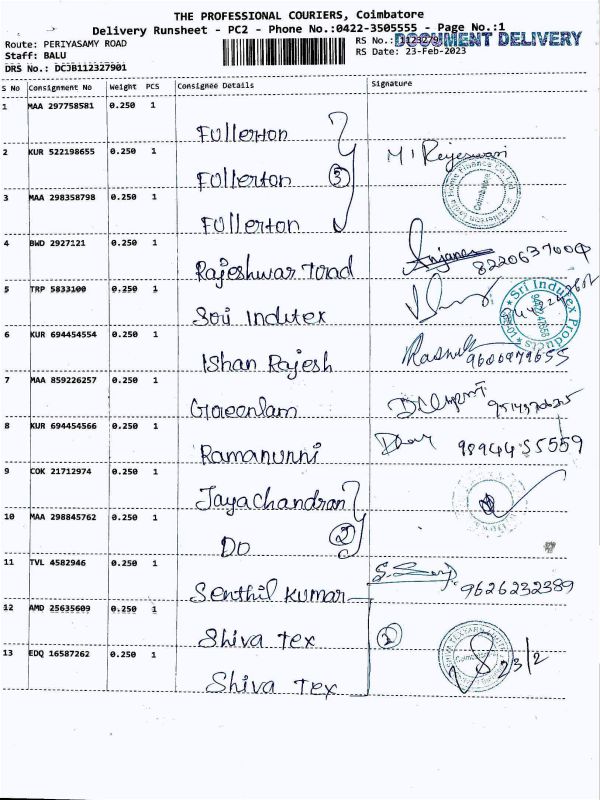 THE PROFESSIONAL COURIERS, Coimbatore
Delivery Runsheet - PC2 - Phone No.:0422-3505555 - Page No.:1
Route: PERIYASAMY ROAD
RS No.: 
DOCUMENT DELIVERY
Staff: BALU
RS Date: 23-Feb-2023
DRS No.: DCJB112327901
S No Consignment No Weight PCS Consignee Details Signature
1 MAA 297758581 0.250 1
Fullerton
2 KUR 522198655 0.250 1
Fullerton 3
3 MAA 298358798 0.250 1
Fullerton
4 BWD 2927121 0.250 1
Rajeshwar
5 TRP 5833100 0.250 1
Sri Indutex
Sri Indutex Products
6 KUR 694454554 0.250 1
Ishan Rajesh 9606979655
7 MAA 859226257 0.250 1
8 KUR 694454566 0.250 1
Ramanunni 9894455559
9 COK 21712974 0.250 1
Jayachandran
10 MAA 298845762 0.250 1
Do 2
11 TVL 4582946 0.250 1
Senthil Kumar 9626232389
12 AMD 25635609 0.250 1
Shiva Tex 2
13 EDQ 16587262 0.250 1
Shiva Tex 23/2